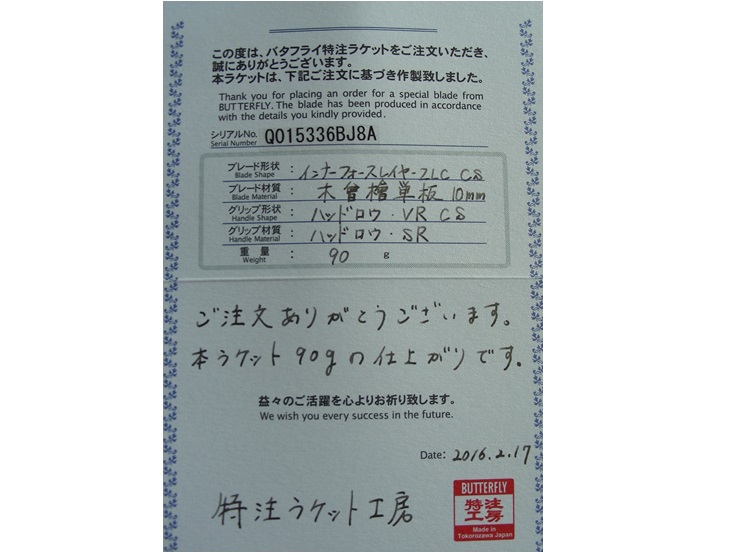 この度は、バタフライ特注ラケットをご注文いただき、
誠にありがとうございます。
本ラケットは、下記ご注文に基づき作製致しました。
Thank you for placing an order for a special blade from
BUTTERFLY. The blade has been produced in accordance
with the details you kindly provided.
シリアルNo. Serial Number Q015336BJ8A
ブレード形状 Blade Shape : インナーフォースレイヤーズLC CS
ブレード材質 Blade Material : 木曾檜単板 10mm
グリップ形状 Handle Shape : ハッドロウ・VR CS
グリップ材質 Handle Material : ハッドロウ・SR
重量 Weight : 90 g
ご注文ありがとうございます。
本ラケット90gの仕上がりです。
益々のご活躍を心よりお祈り致します。
We wish you every success in the future.
Date: 2016.2.17
特注ラケット工房
BUTTERFLY
特注
工房
Made in
Tokorozawa Japan